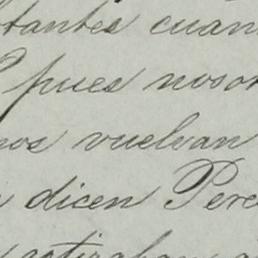 tantes cuan
pues nosot
nos vuelvan
dicen Perc